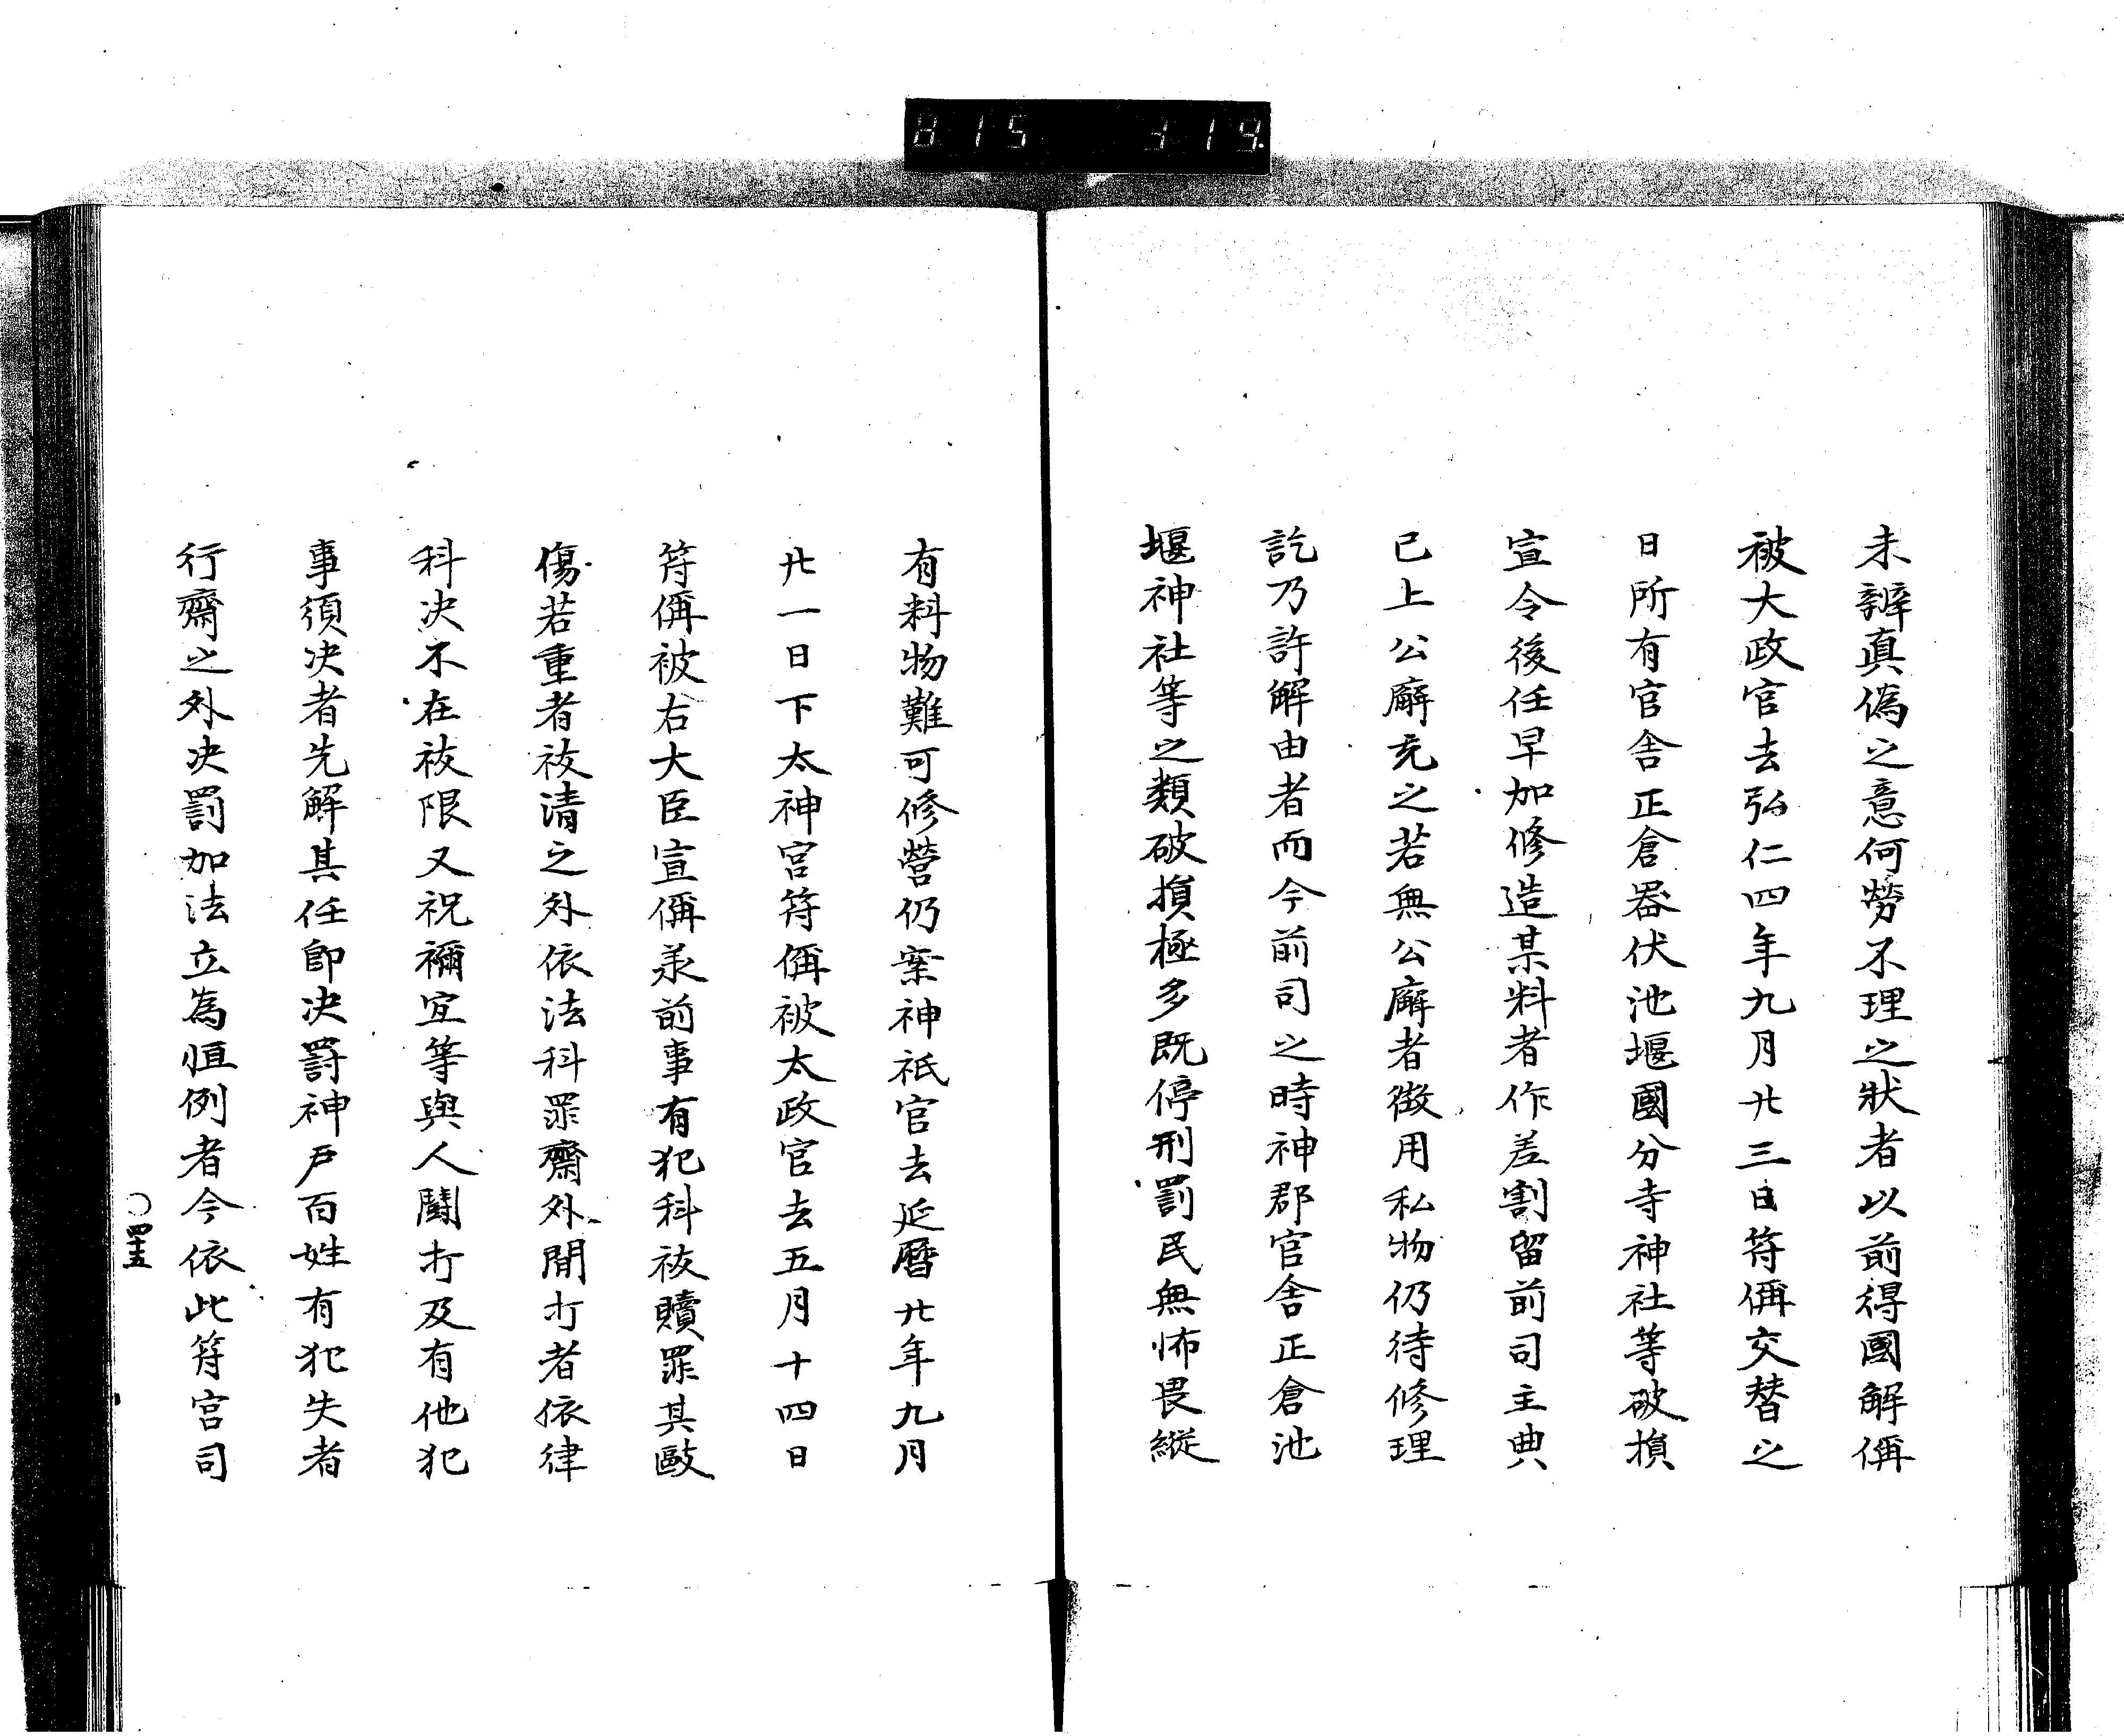 815 314
未辨真偽之意何勞不理之狀者以前得國解偁
被大政官去弘仁四年九月廿三日符偁交替之
日所有官舎正倉器伏池堰國分寺神社等破損
宣令後任早加修造某料者作差割留前司主典
已上公廨充之若無公廨者徴用私物仍待修理
訖乃許解由者而今前司之時神郡官舎正倉池
堰神社等之類破損極多既停刑罰民無怖畏縱
有料物難可修營仍案神祇官去延曆廿年九月
廿一日下太神宮符偁被太政官去五月十四日
符偁被右大臣宣偁承前事有犯科祓贖罪其毆
傷若重者祓清之外依法科罪齋外聞打者依律
科决不在祓限又祝禰宜等與人鬪打及有他犯
事須决者先解其任即决罸神戸百姓有犯失者
行齋之外决罰加法立為恒例者今依此符宮司
〇四十五